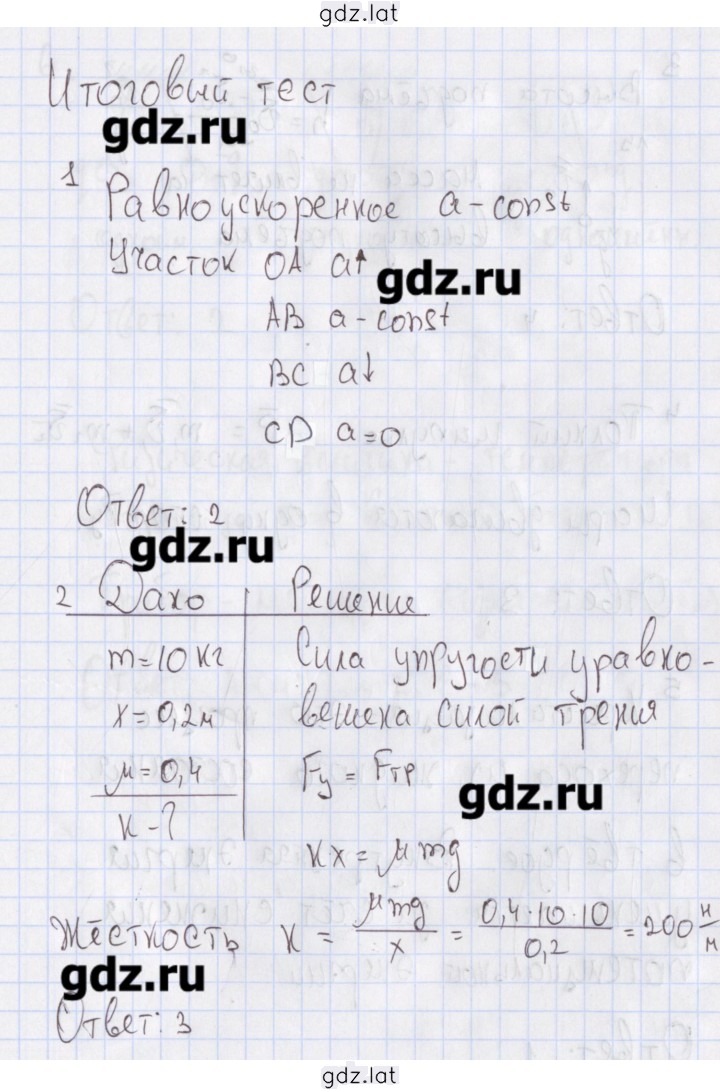 gdz.lat
Итоговый тест
gdz.ru
1 Равноускоренное a - const
Участок OA a↑
gdz.ru
AB a - const
BC a↓
CD a = 0
Ответ: 2
gdz.ru
2 Дано Решение
m = 10 кг
x = 0,2 м
μ = 0,4
к - ?
Сила упругости уравно-
вешена силой трения
Fy = Fтр
gdz.ru
кx = μmg
Жёсткость к = μmg/x = 0,4·10·10/0,2 = 200 н/м
gdz.ru
Ответ: 3
gdz.lat